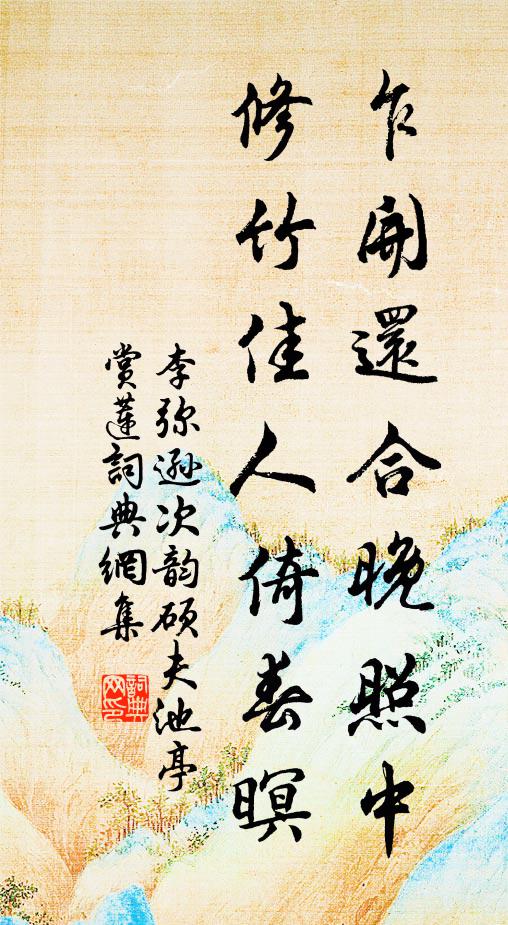 乍開還合晚照中
修竹佳人倚春暝
李弥遜次韵硕夫池亭
賞蓮詞典網集
詞典
网印